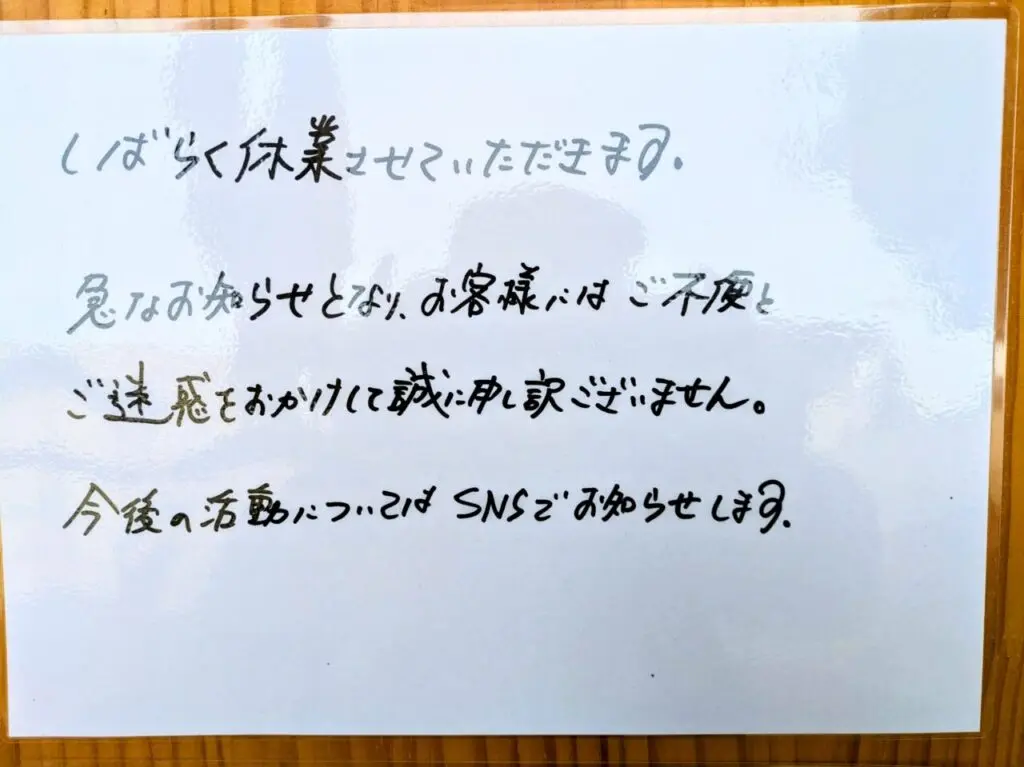 しばらく休業させていただきます.
急なお知らせとなり、お客様には ご不便と
ご迷惑をおかけして誠に申し訳ございません。
今後の活動については SNSでお知らせします.